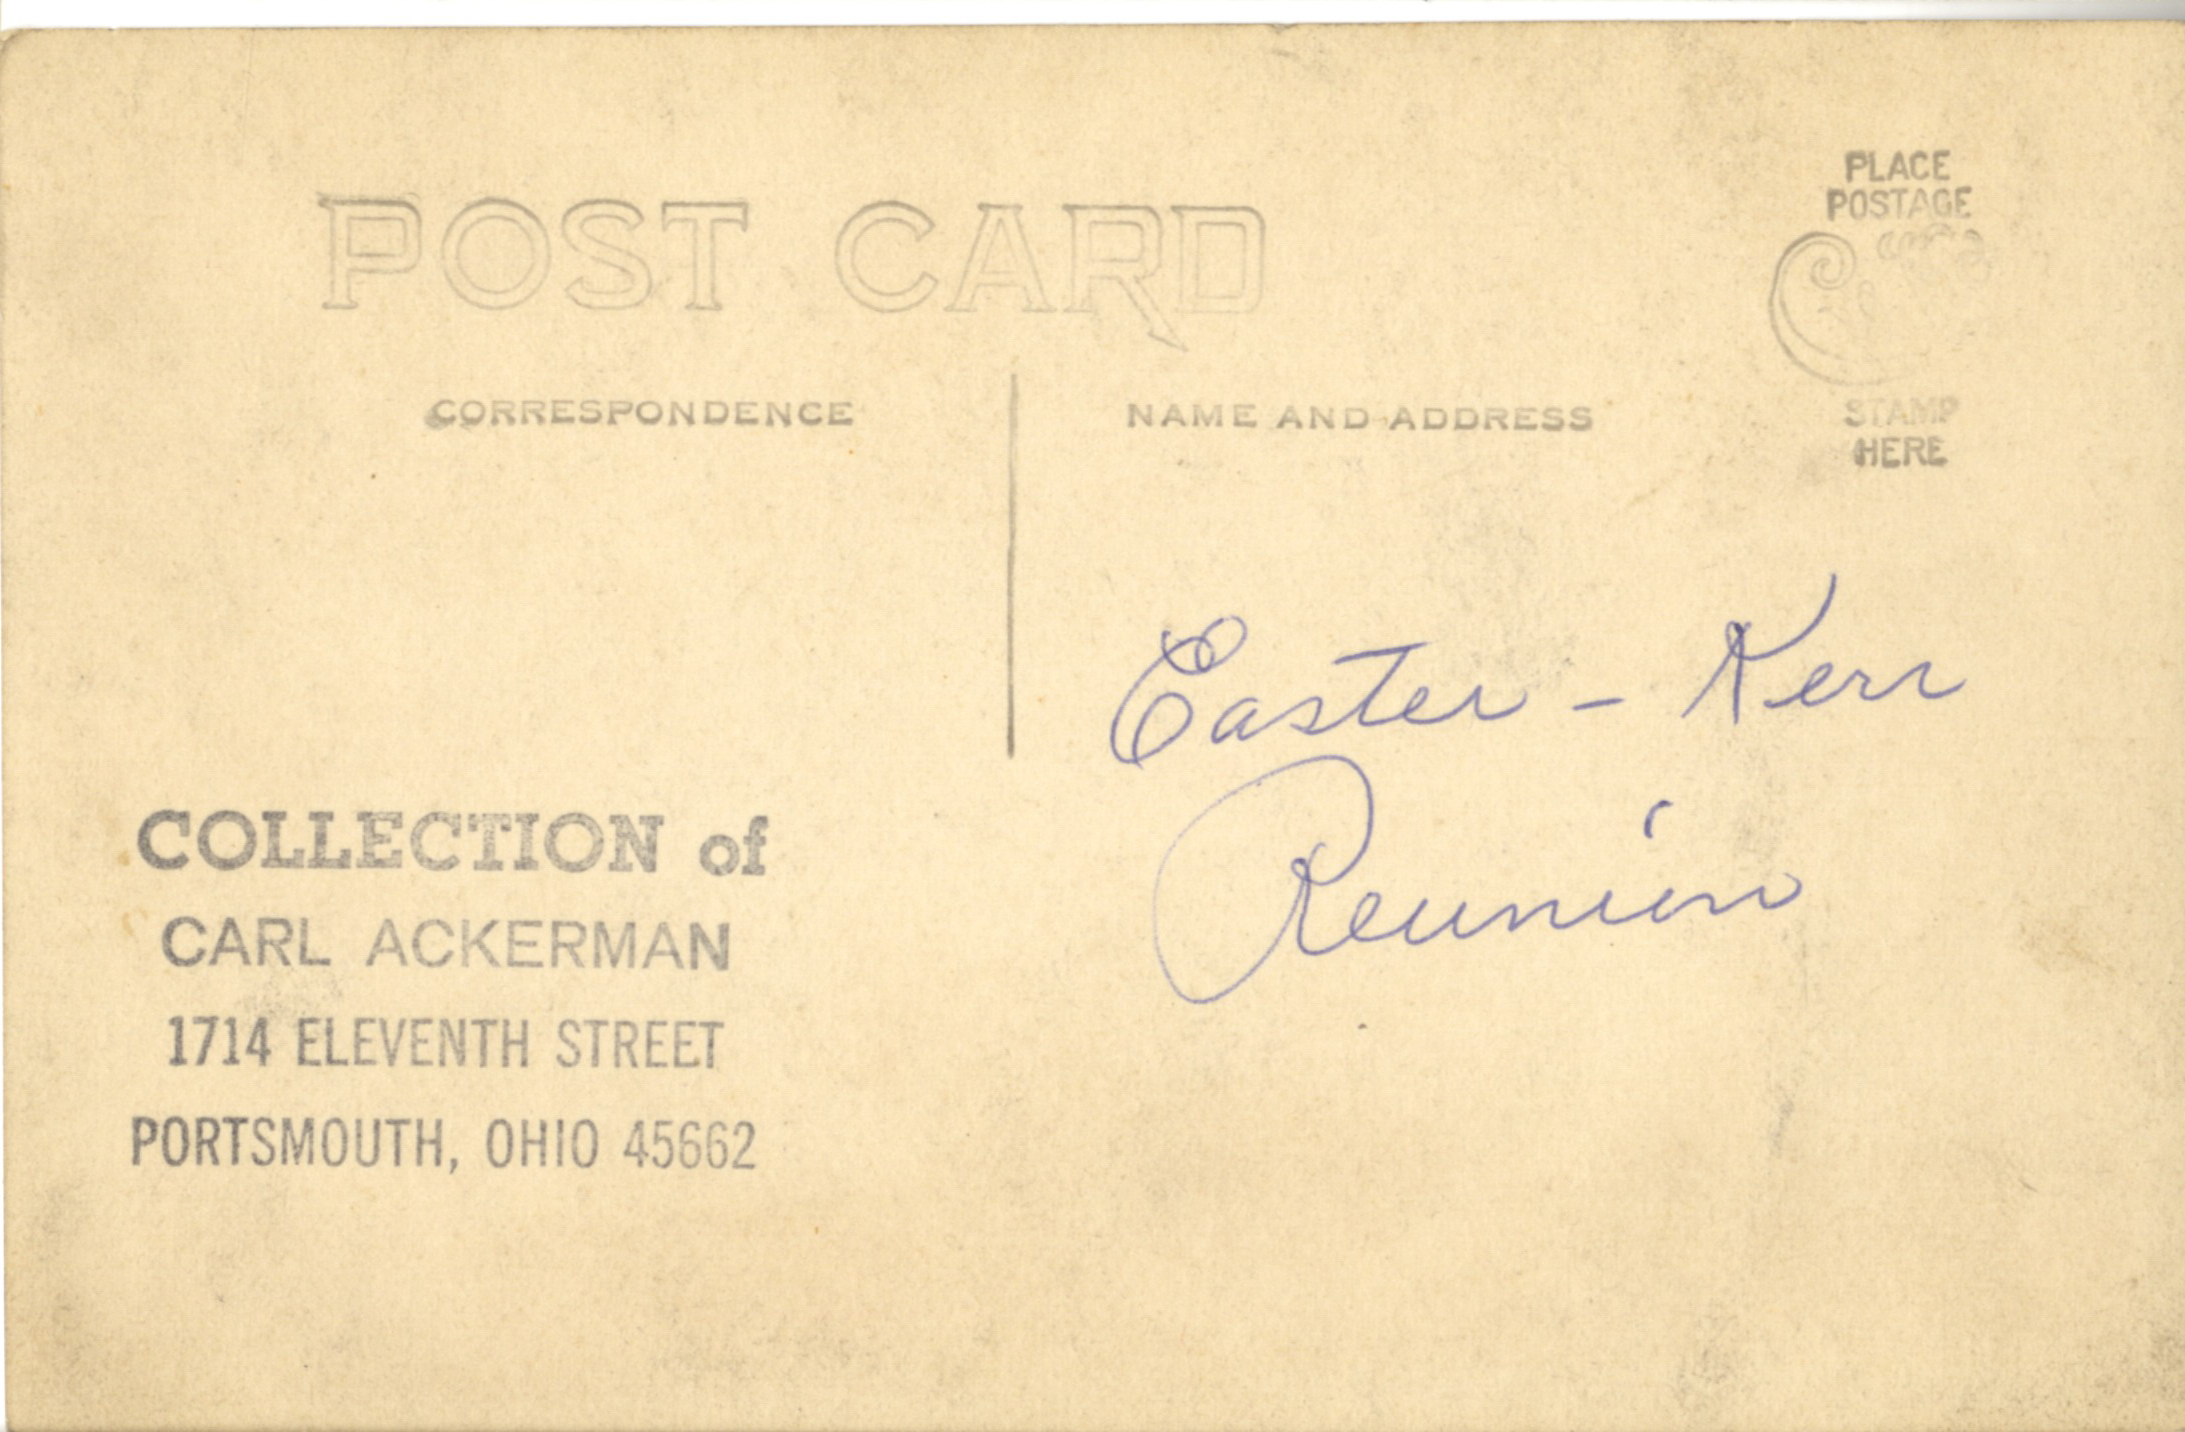 POST CARD
PLACE
POSTAGE
STAMP
HERE
CORRESPONDENCE
NAME AND ADDRESS
Easter - Kerr
Reunion
COLLECTION of
CARL ACKERMAN
1714 ELEVENTH STREET
PORTSMOUTH, OHIO 45662